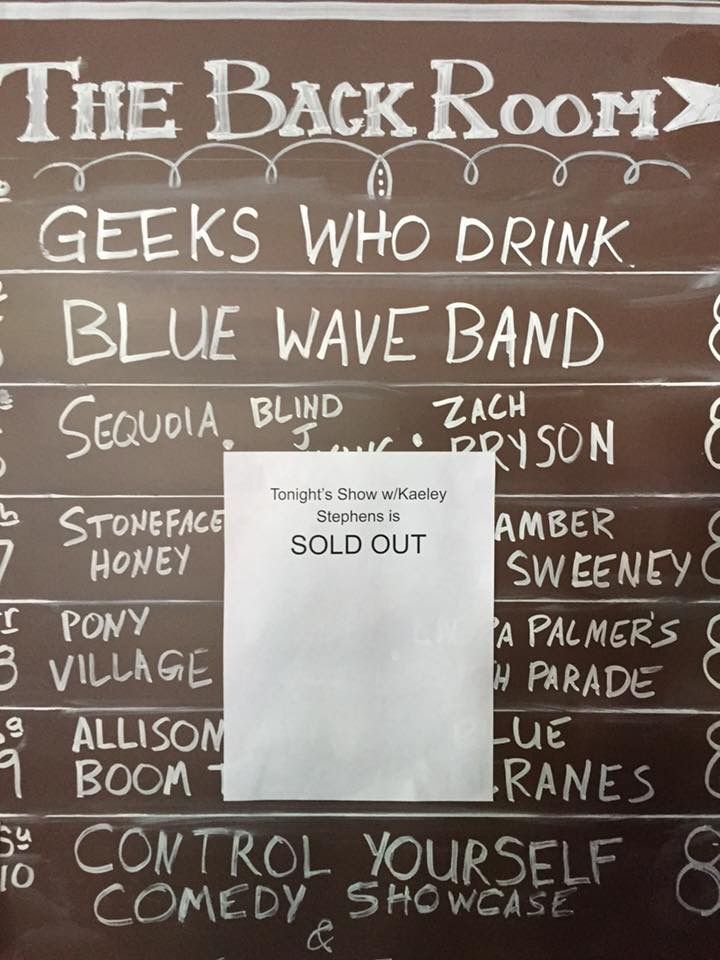 THE BACK ROOM
GEEKS WHO DRINK
BLUE WAVE BAND
SEQUOIA. BLIND J • ZACH BRYSON
Tonight's Show w/Kaeley
Stephens is
SOLD OUT
STONEFACE AMBER
7 HONEY SWEENEY
PONY PALMER'S
8 VILLAGE PARADE
ALLISON
9 BOOM RANES
Su CONTROL YOURSELF 8
10 COMEDY SHOWCASE
&